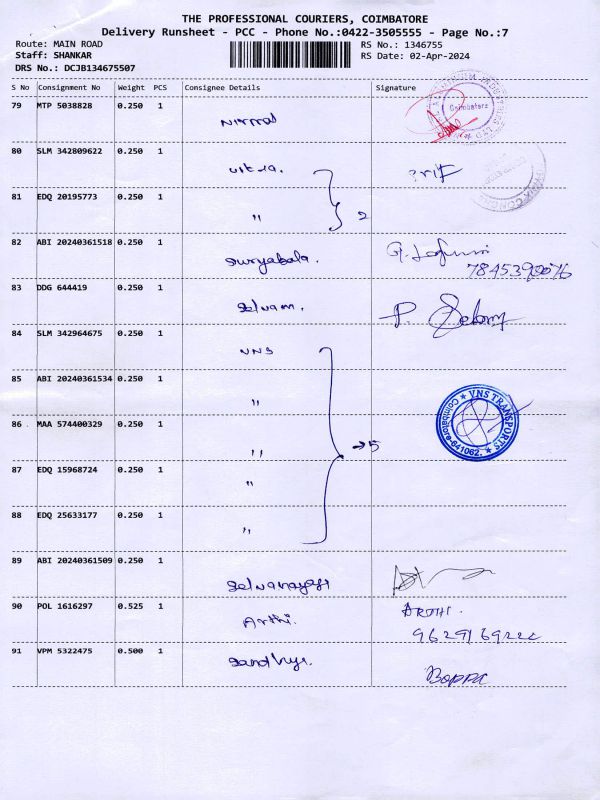 THE PROFESSIONAL COURIERS, COIMBATORE
Delivery Runsheet - PCC - Phone No.:0422-3505555 - Page No.:7
Route: MAIN ROAD
RS No.: 1346755
Staff: SHANKAR
RS Date: 02-Apr-2024
DRS No.: DCJB134675507
S No Consignment No Weight PCS Consignee Details Signature
79 MTP 5038828 0.250 1 Nirmal
Coimbatore
80 SLM 342809622 0.250 1
81 EDQ 20195773 0.250 1 " 2
82 ABI 20240361518 0.250 1 Suryabala.
7845390076
83 DDG 644419 0.250 1 Selvam. P. Selvam
84 SLM 342964675 0.250 1 VNS
85 ABI 20240361534 0.250 1 "
VNS TRANSPORTS
Coimbatore-641062.
86 MAA 574400329 0.250 1 " → 5
87 EDQ 15968724 0.250 1 "
88 EDQ 25633177 0.250 1 "
89 ABI 20240361509 0.250 1
90 POL 1616297 0.525 1 Arthi. ARTHI.
91 VPM 5322475 0.500 1 Sandhya. Boppa